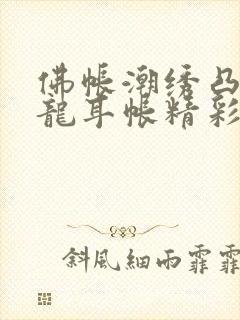 佛帐潮绣凸
龍耳帐精彩
斜风细雨霏霏